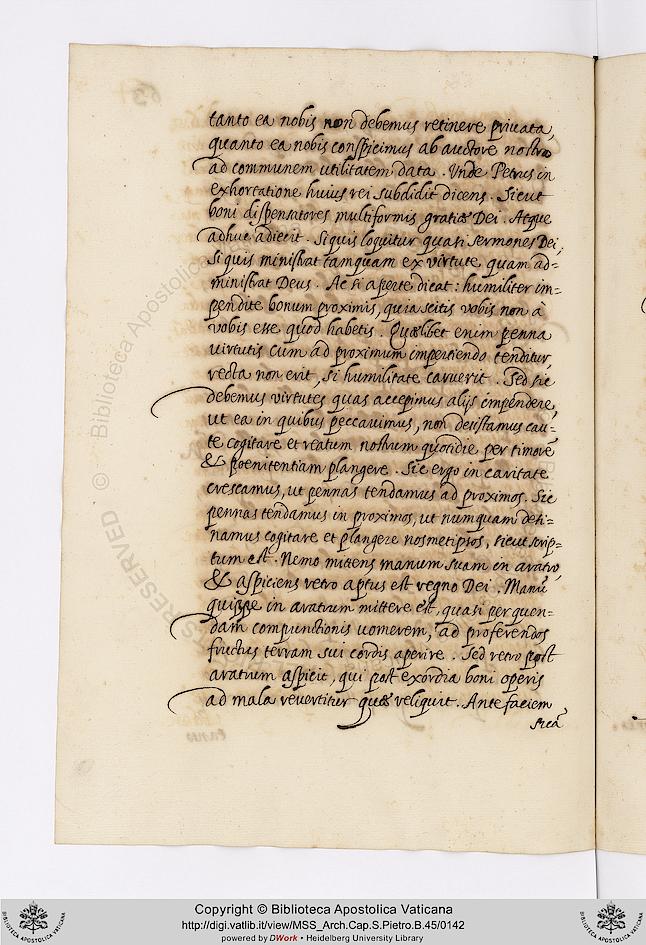 tanto ea nobis non debemus retinere priuata,
quanto ea nobis conspicimus ab auctore nostro
ad communem utilitatem data. Vnde Petrus in
exhortatione huius rei subdidit dicens. Sicut
boni dispensatores multiformis gratiæ Dei. Atque
adhuc adiecit. Siquis loquitur quasi sermones Dei;
si quis ministrat tamquam ex virtute, quam ad=
ministrat Deus. Ac si aperte dicat: humiliter im=
pendite bonum proximis, quia scitis vobis non à
vobis esse quod habetis. Quælibet enim penna
virtutis cum ad proximum impertiendo tenditur,
recta non erit, si humilitate caruerit. Sed sic
debemus virtutes quas accepimus alijs impendere,
ut ea in quibus peccauimus, non desistamus cau=
te cogitare et reatum nostrum quotidie per timorē
& poenitentiam plangere. Sic ergo in caritate
crescamus, ut pennas tendamus ad proximos. Sic
pennas tendamus in proximos, ut numquam desi=
namus cogitare et plangere nosmetipsos, sicut scrip=
tum est. Nemo mittens manum suam in aratro,
& aspiciens retro aptus est regno Dei. Manū
quippe in aratrum mittere est, quasi per quen=
dam compunctionis uomerem, ad proferendos
fructus terram sui cordis aperire. Sed retro post
aratrum aspicit, qui post exordia boni operis
ad mala reuertitur quæ reliquit. Ante faciem
© Biblioteca Apostolica
S RESERVED
Copyright © Biblioteca Apostolica Vaticana
http://digi.vatlib.it/view/MSS_Arch.Cap.S.Pietro.B.45/0142
powered by DWork • Heidelberg University Library